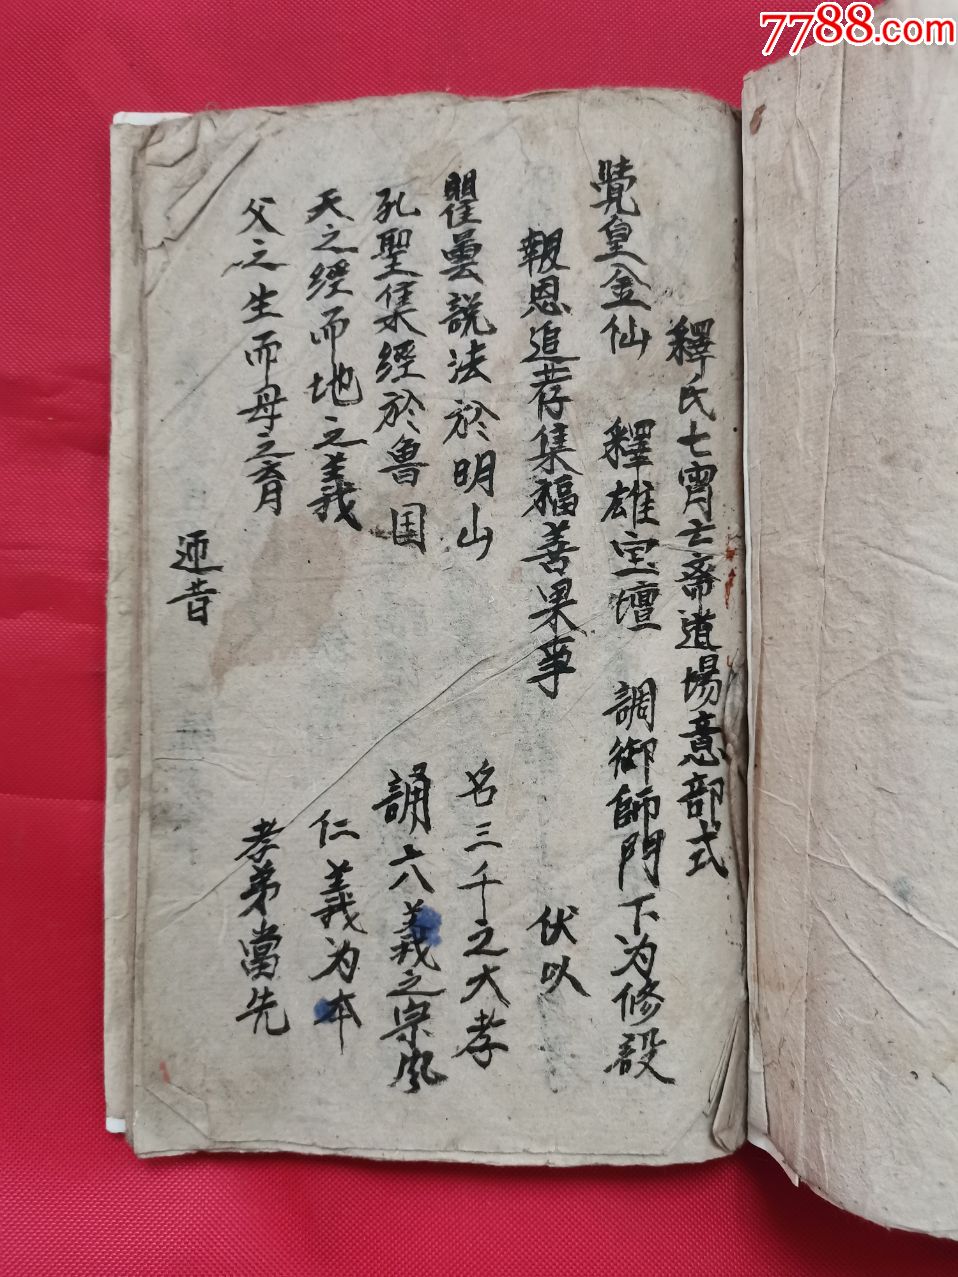 7788.com
釋氏七宵亡斋道場意部式
覺皇金仙 釋雄宝壇 調御師門下为修設
報恩追荐集福善果事 伏以
瞿曇説法於明山 名三千之大孝
孔聖集經於魯国 誦六義之宗風
天之經而地之義 仁義为本
父之生而母之育 孝弟當先
昔